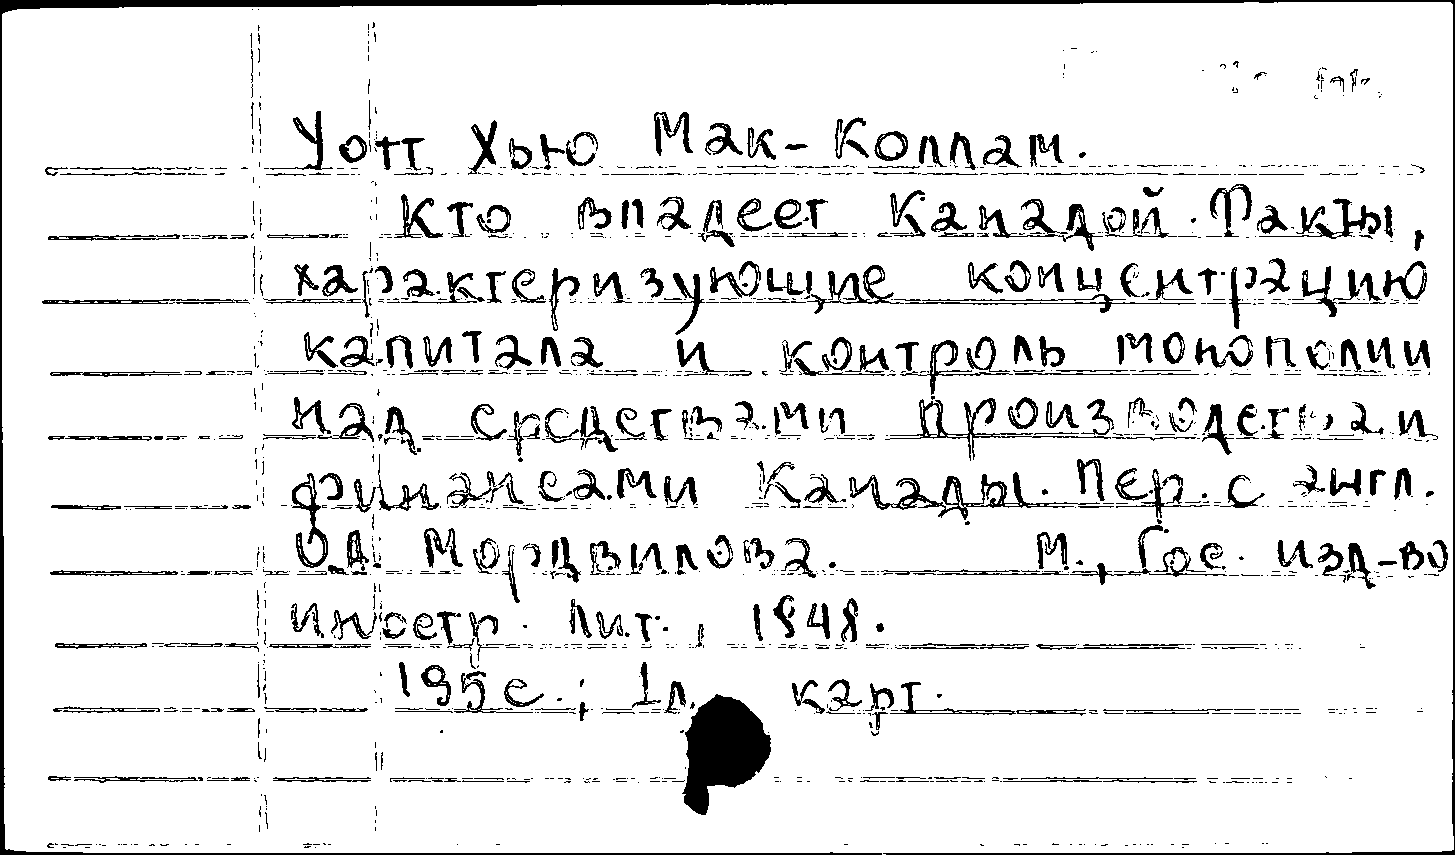 Уотт Хью Мак-Коллам.
Кто владеет Канадой. Факты,
характеризующие концентрацию
капитала и контроль монополии
над средствами производства и
финансами Канады. Пер. с англ.
О.А. Мордвилова. М., Гос. изд-во
иностр. лит., 1948.
195 с.; 1л. карт.